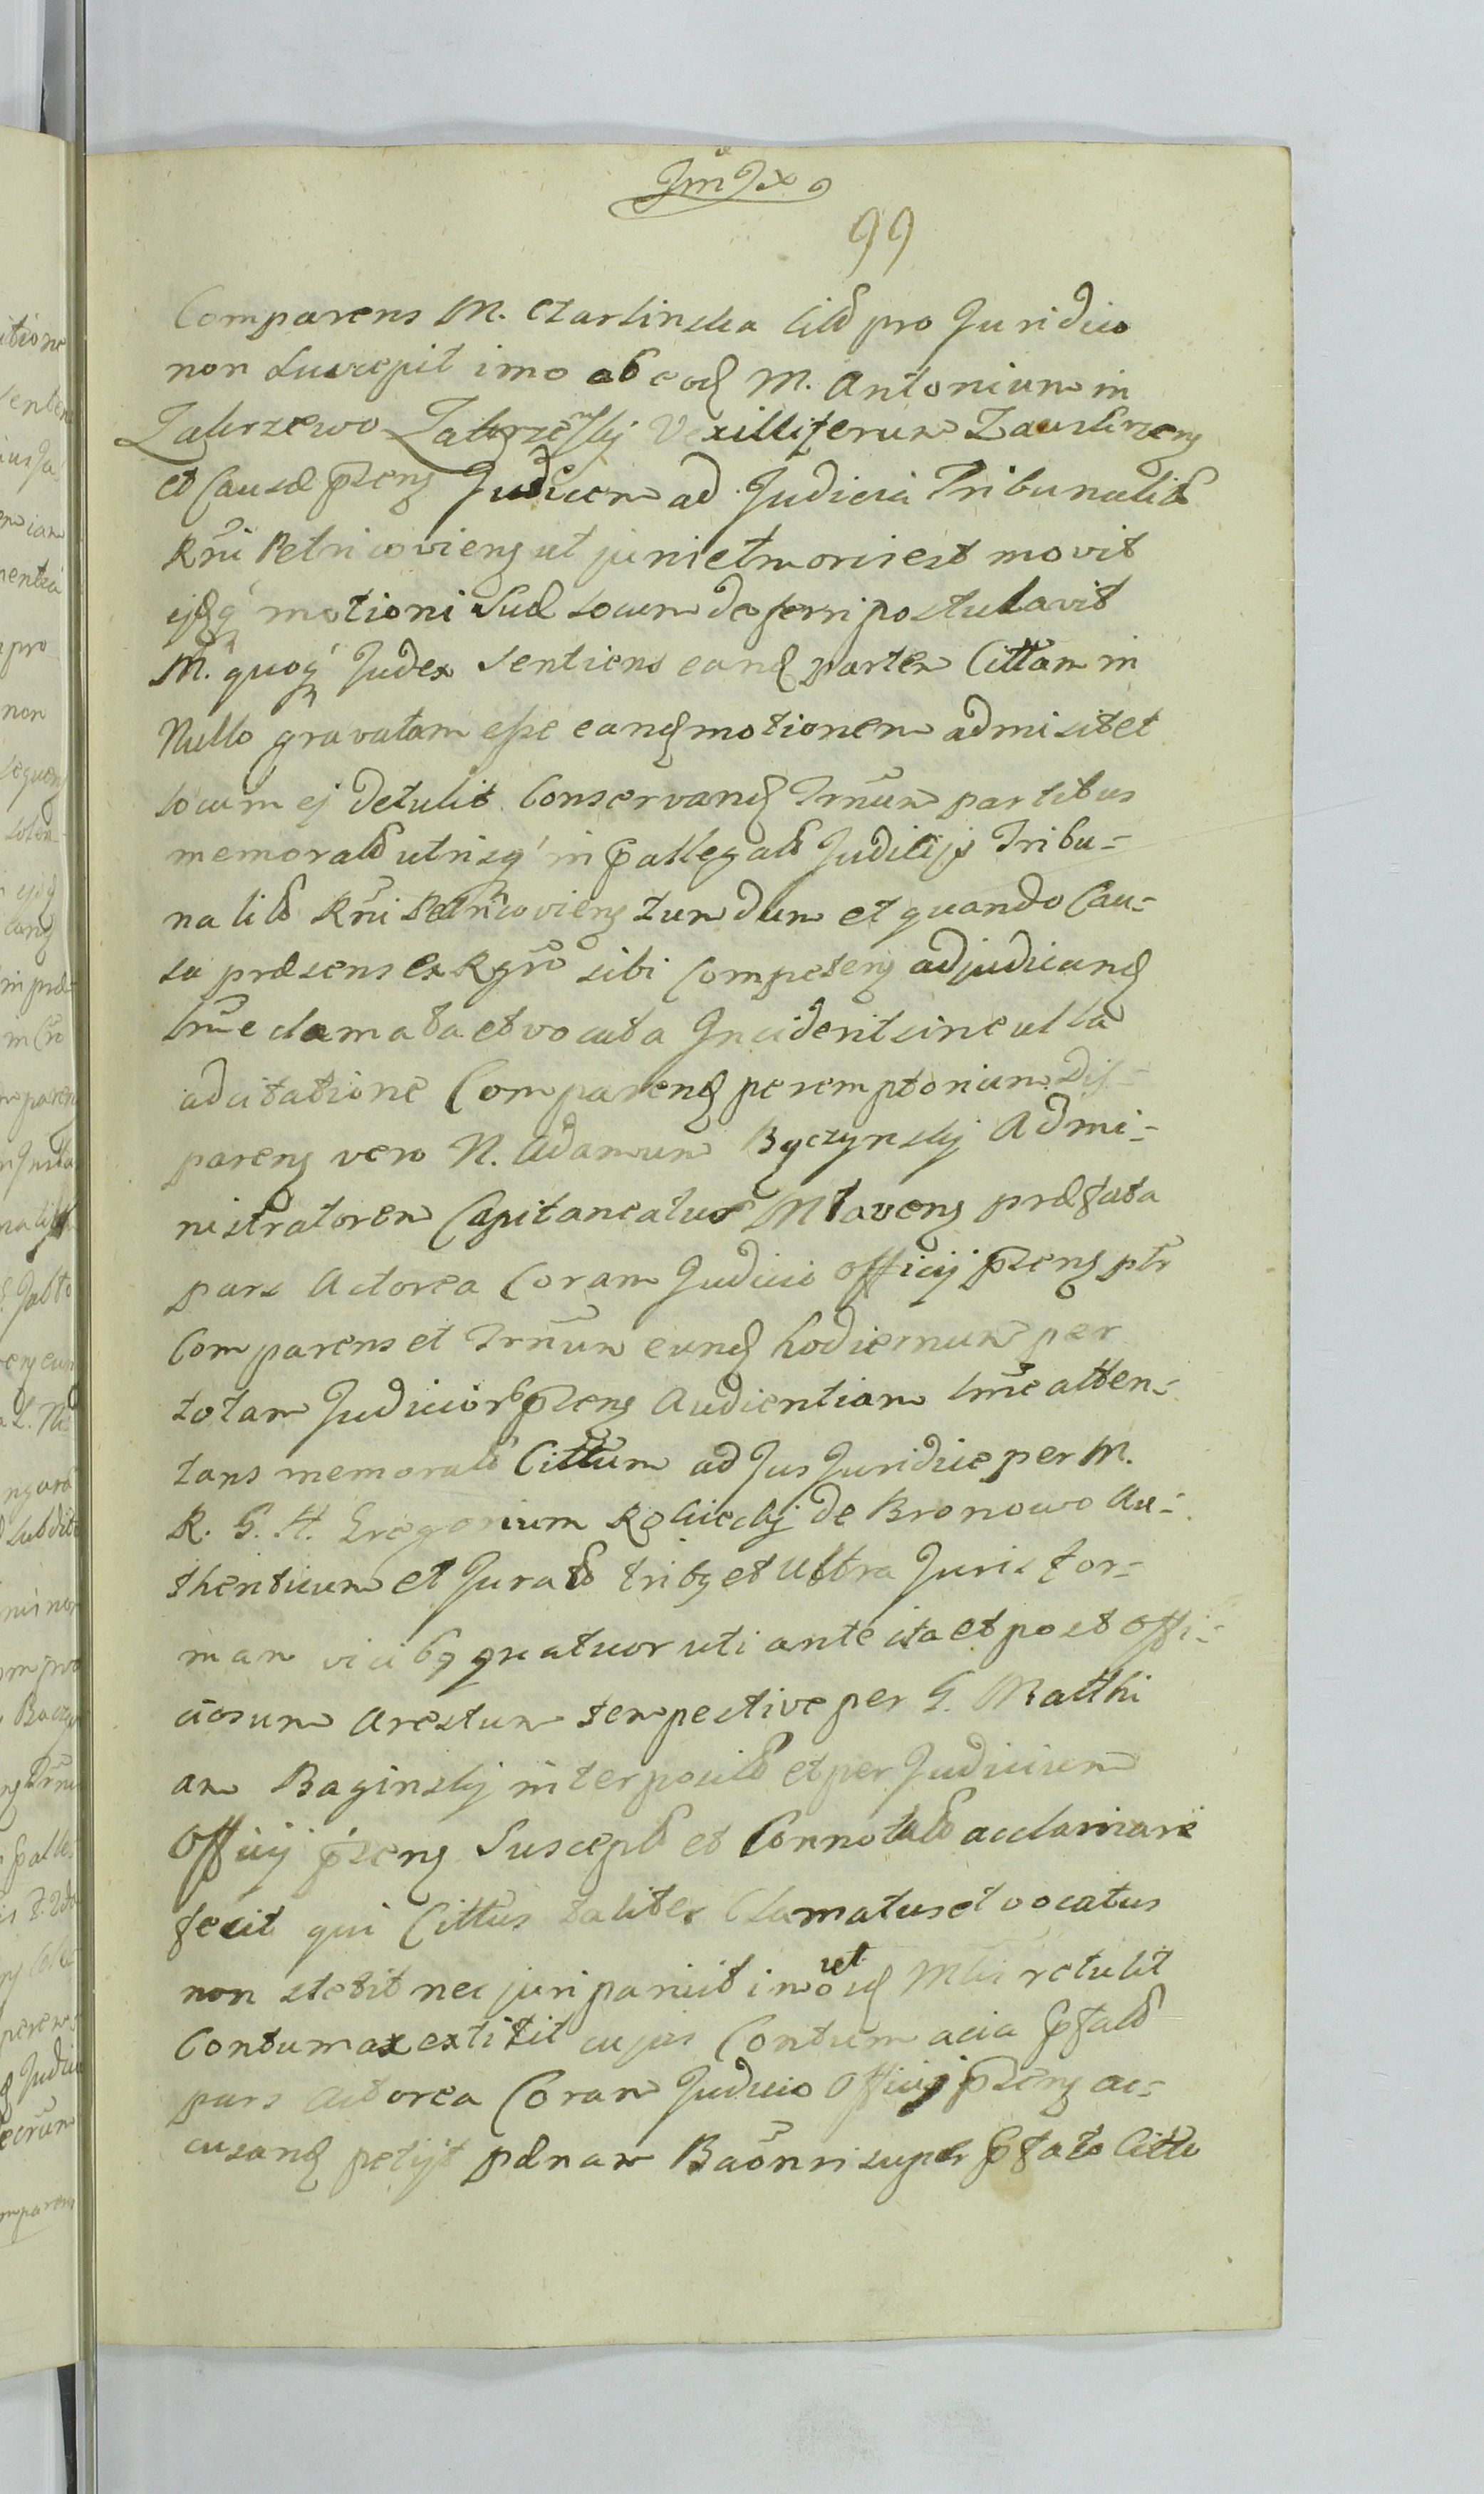 99
Comparens M. Czarlinska pro Juridico
non suscepit imo ab eod M. Antonium in
Zakrzewo Zakrzenskj Vexilliferum Zauskrzens
et Causæ pñtens Judicem ad Judicia Tribunalitia
Rñi Petricoviens ut juris et moris est movit
ejsq motioni suæ locum deferri postulavit
M. quoq Judex sentiens eand partem Cittam in
Nullo gravatam esse eand motionem admisit et
locum ej detulit Conservand Trñum partibus
memoratis utrisq in Judicijs Tribu-
nalib Rñi Petricoviens tum dum et quando Cau-
sa præsens ex Rgro sibi Competens adjudicand
Trñe clamata et vocata Inciderit sine ulla
adcitatione Comparend peremptorium Dis-
parens vero N. Adamum Bączynskj Admi-
nistratorem Capitaneatus Mlavens præfata
pars Actorea Coram Judicio Officij pñtens ptr
Comparens et Trñum eund hodiernum per
totam Judicior pñtens Audientiam Trñe atten-
tans memorat Cittum ad Jus Juridice per M.
R. G. H. Gregorium Rokickj de Bronowo Au-
thenticum et Jurat trib et ultra Juris for-
mam vicibq quatuor uti ante ita et post Offi-
ciosum Arestum tempestive per G. Matthi
am Baginskj interposit et per Judicium
Officij pñtens Suscept et Connotat acclamari
fecit qui Cittus taliter Clamatus et vocatus
non stetit nec juri paruit imo ut id Mlis retulit
Contumax extitit cujus Contumacia pfata
pars Actorea Coram Judicio Officij pñtens ac-
cusand petijt pænam Baõnri super pfato Citto